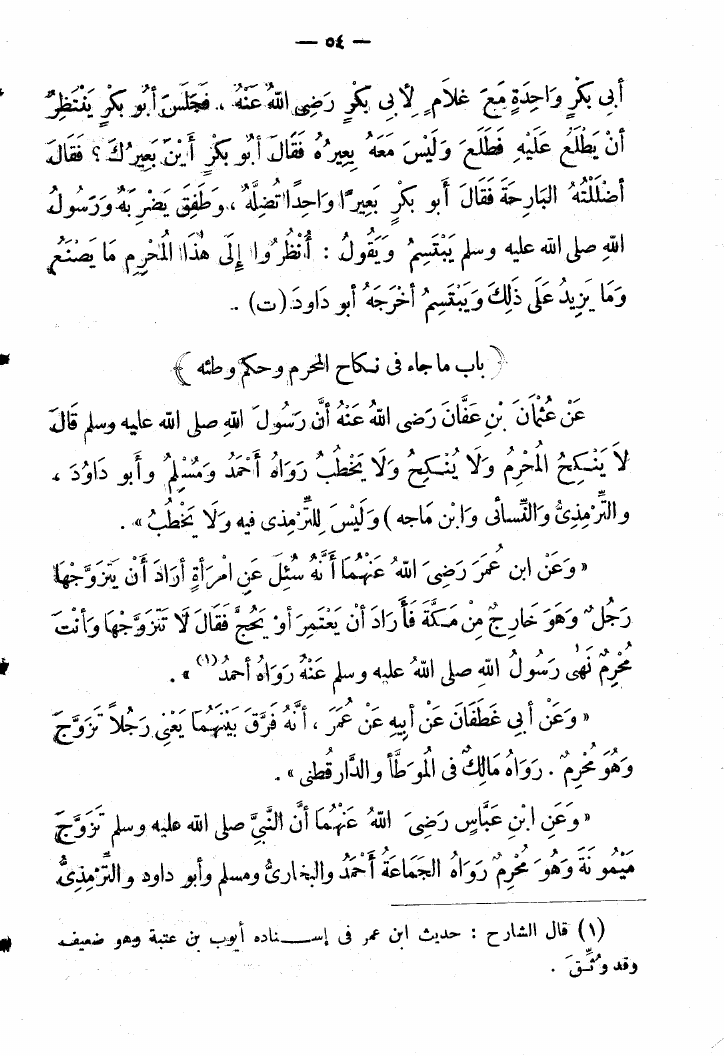 — ٥٤ —
أَبِى بَكْرٍ وَاحِدَةٍ مَعَ غُلَامٍ لِأَبِى بَكْرٍ رَضِىَ اللهُ عَنْهُ ، فَجَلَسَ أَبُو بَكْرٍ يَنْتَظِرُ
أَنْ يَطْلُعَ عَلَيْهِ فَطَلَعَ وَلَيْسَ مَعَهُ بَعِيرُهُ فَقَالَ أَبُو بَكْرٍ أَيْنَ بَعِيرُكَ ؟ فَقَالَ
أَضْلَلْتُهُ البَارِحَةَ فَقَالَ أَبو بَكْرٍ بَعِيرًا وَاحِدًا تُضِلُّهُ ، وَطَفِقَ يَضْرِبُهُ وَرَسُولُ
اللهِ صلى الله عليه وسلم يَبْتَسِمُ وَيَقُولُ : أُنْظُرُوا إِلَى هَذَا المُحْرِمِ مَا يَصْنَعُ
وَمَا يَزِيدُ عَلَى ذَلِكَ وَيَبْتَسِمُ أَخْرَجَهُ أَبو دَاودَ (ت) .
﴿ باب ما جاء فى نكاح المحرم وحكم وطئه ﴾
عَنْ عُثْمَانَ بْنِ عَفَّانَ رَضِىَ اللهُ عَنْهُ أَنَّ رَسُولَ اللهِ صلى الله عليه وسلم قَالَ
لَا يَنْكِحُ المُحْرِمُ وَلَا يُنْكِحُ وَلَا يَخْطُبُ رَوَاهُ أَحْمَدُ وَمُسْلِمُ وأَبو دَاوُدَ ،
والتِّرْمِذِىُّ وَالنَّسائى وَابْن مَاجه ) وَلَيْسَ لِلتِّرْمِذى فِيه وَلَا يَخْطُبُ » .
« وَعَنْ ابن عُمَرَ رَضِىَ اللهُ عَنْهُمَا أَنَّهُ سُئِلَ عَنِ امْرَأَةٍ أَرَادَ أَنْ يَتَزَوَّجَهَا
رَجُلٌ وَهُوَ خَارِجٌ مِنْ مَكَّةَ فَأَرَادَ أَنْ يَعْتَمِرَ أَوْ يَحُجَّ فَقَالَ لَا تَتَزَوَّجْهَا وَأَنْتَ
مُحْرِمٌ نَهَى رَسُولُ اللهِ صلى اللهُ عليه وسلم عَنْهُ رَوَاهُ أَحمدُ(١) » .
« وَعَنْ أَبِى غَطَفَانَ عَنْ أَبِيهِ عَنْ عُمَرَ ، أَنَّهُ فَرَّقَ بَيْنَهُمَا يَعْنِى رَجُلاً تَزَوَّجَ
وَهُوَ مُحْرِمٌ . رَوَاهُ مَالِكٌ فى المُوَطَّأ والدَّارقُطنى » .
« وَعَنِ ابْنِ عَبَّاسٍ رَضِىَ اللهُ عَنْهُمَا أَنَّ النَّبِىَّ صلى الله عليه وسلم تَزَوَّجَ
مَيْمُونَةَ وَهُوَ مُحْرِمٌ رَوَاهُ الجَمَاعَةُ أَحْمَدُ والبخارىُّ ومسلم وأَبو داود والتِّرْمِذِىُّ
(١) قال الشارح : حديث ابن عمر فى إسناده أيوب بن عتبة وهو ضعيف
وقد وُثِّقَ .